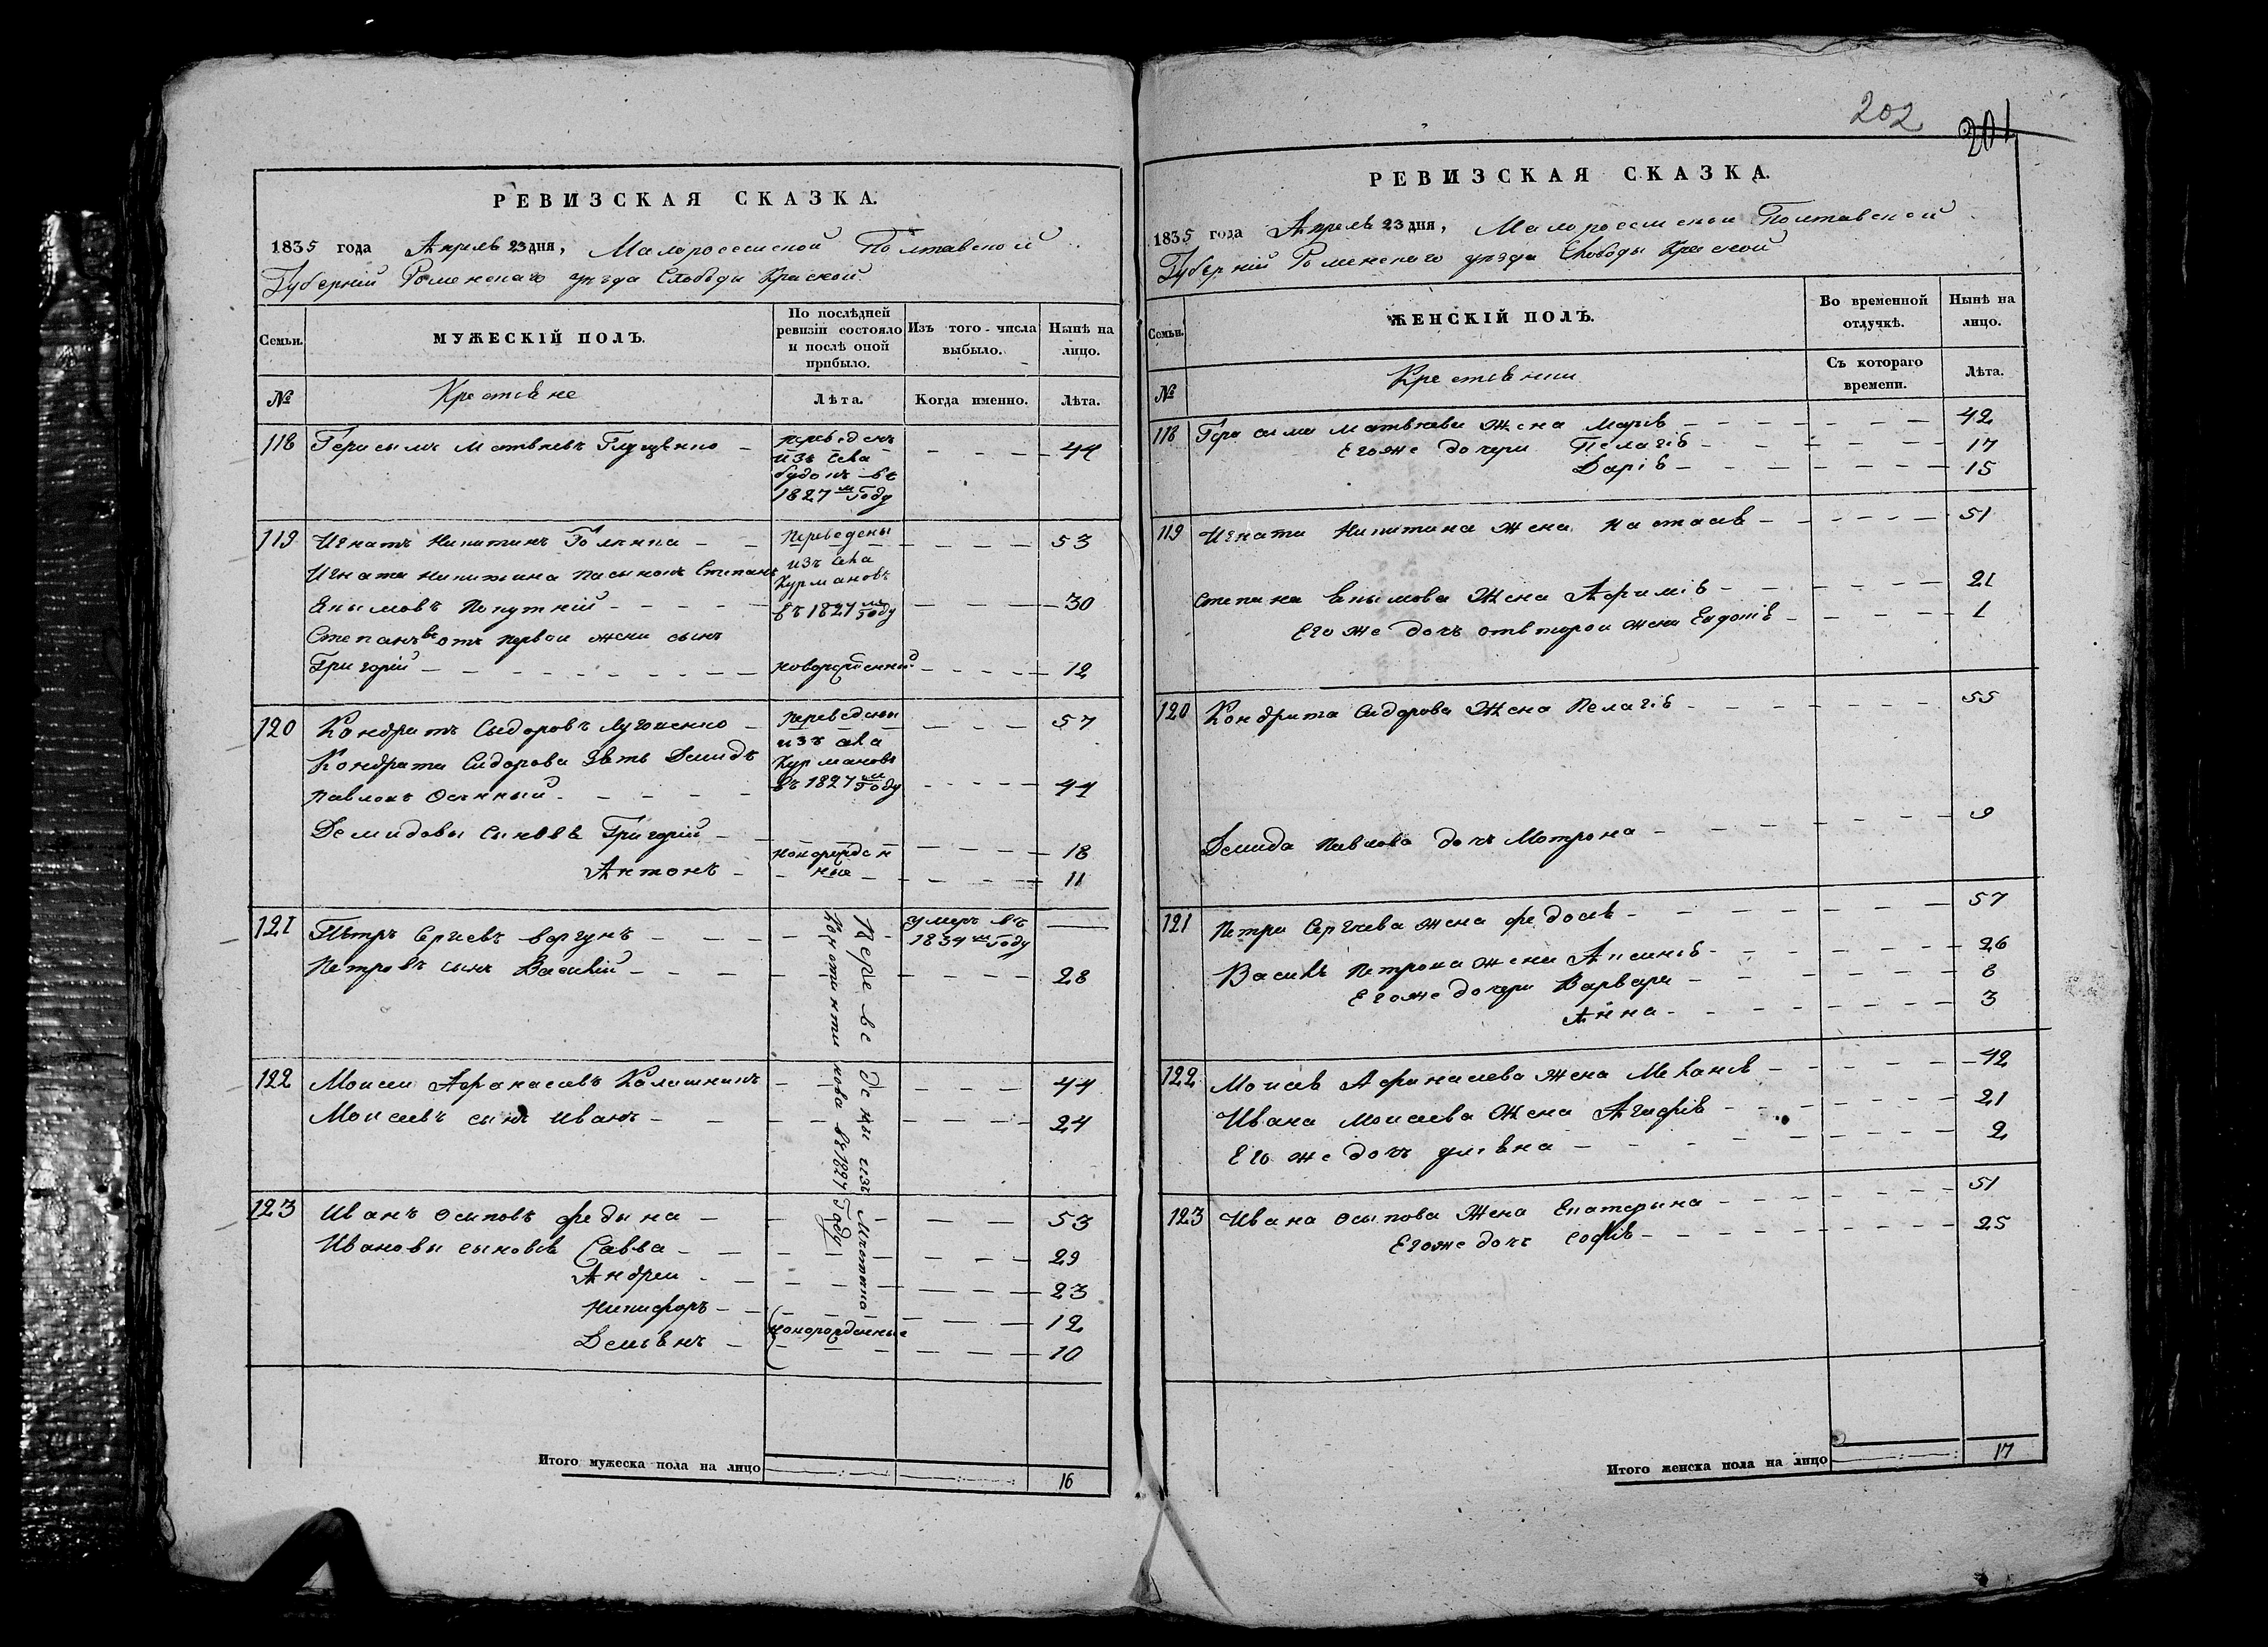 РЕВИЗСКАЯ СКАЗКА.
1835 года Апреля 23 дня, Малоросейской Полтавской
Губерній Роменскаго уезда Слободы Краской
Семьи.
МУЖЕСКІЙ ПОЛЪ.
По послѣдней ревизіи состояло и послѣ оной прибыло.
Изъ того-числа выбыло.
Нынѣ на лицо.
№
Крестьяне
Лѣта.
Когда именно.
Лѣта.
118 Герасимъ Матвѣевъ Глущенко 44
переведенъ
изъ села
въ
1827 м году
119 Игнатъ Никитинъ 53
Переведены
изъ села
Курмановъ
въ 1827 м году
Игната Никитина пасынокъ Степанъ
Екимовъ Попутній 30
Степановъ отъ первои жены сынъ
Григорій новорожденный 12
120 Кондратъ Сыдоровъ 57
переведены
изъ села
Курмановъ
въ 1827 м году
Кондрата Сидорова зять Демидъ
Павловъ 44
Демидовы сыновья Григорій 18
новорожден
ные
Антонъ 11
121 Пѣтръ Сергиевъ Воргунъ
умеръ въ
1834 м году
Петровъ сынъ Василій 28
Переведены изъ
въ 1827 Году
122 Моисеи Афанасьевъ Калашникъ 44
Моисеевъ сынъ Иванъ 24
123 Иванъ Осиповъ Федына 53
Ивановы сыновья Савва 29
Андреи 23
Никифоръ 12
новорожденные
Демьянъ 10
Итого мужеска пола на лицо
16
202
201
РЕВИЗСКАЯ СКАЗКА.
1835 года Апреля 23 дня, Малоросейской Полтавской
Губерній Роменскаго уезда Слободы Краской
Семьи.
ЖЕНСКІЙ ПОЛЪ.
Во временной отлучкѣ.
Нынѣ на лицо.
№
Крестьянки
Съ котораго времени.
Лѣта.
118 Герасима Матвѣева Жена Марія 42
Егоже дочери Пелагія 17
Дарія 15
119 Игната Никитина жена Настасія 51
Степана Екимова Жена Афимія 21
Его же дочь отвторои жены Евдокія 1
120 Кондрата Сидорова Жена Пелагія 55
Демида Павлова дочь Мотрона 9
121 Петра Сергѣева жена Федосія 57
Василія Петрова жена Аксинія 26
Егоже дочери Варвара 8
Анна 3
122 Моисея Афанасиева Жена Меланія 42
Ивана Моисеева Жена Агафія 21
Его же дочь Уліяна 2
123 Ивана Осипова Жена Екатерына 51
Егоже дочь Софія 25
Итого женска пола на лицо
17